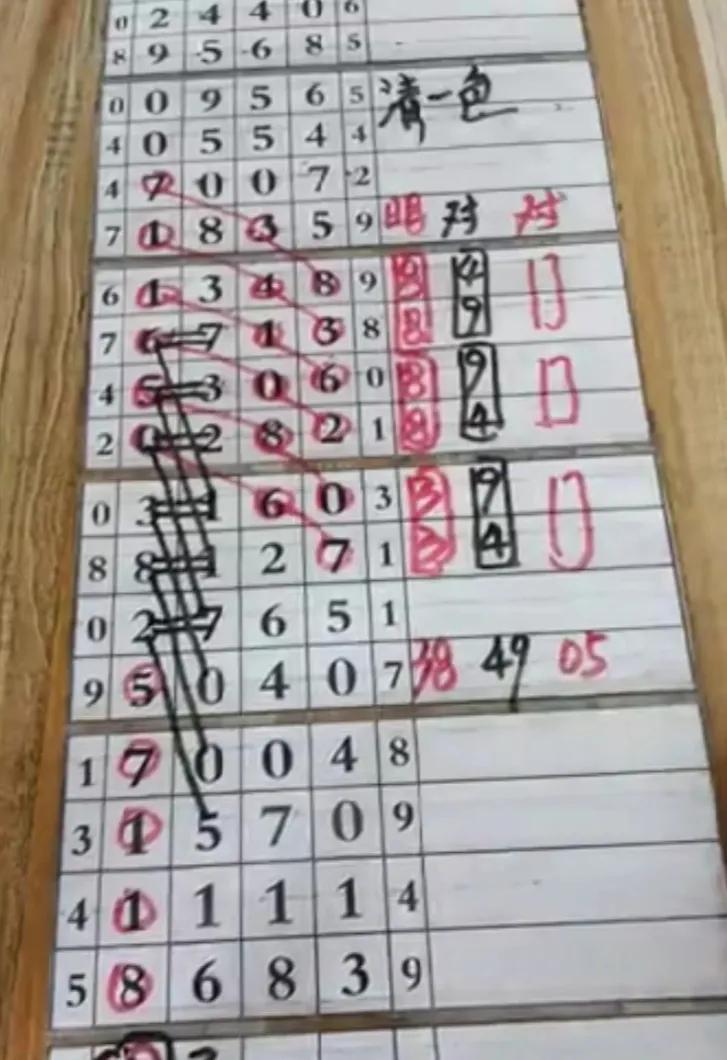 0 2 4 4 0 6
8 9 5 6 8 5
0 0 9 5 6 5 清一色
4 0 5 5 4 4
4 7 0 0 7 2
7 1 8 3 5 9 对 对
6 1 3 4 8 9 8 4
7 6 7 1 3 8 8 9
4 5 3 0 6 0 8 9
2 0 2 8 2 1 8 4
0 3 1 6 0 3 3 9
8 8 1 2 7 1 3 4
0 2 7 6 5 1
9 5 0 4 0 7 38 49 05
1 7 0 0 4 8
3 1 5 7 0 9
4 1 1 1 1 4
5 8 6 8 3 9